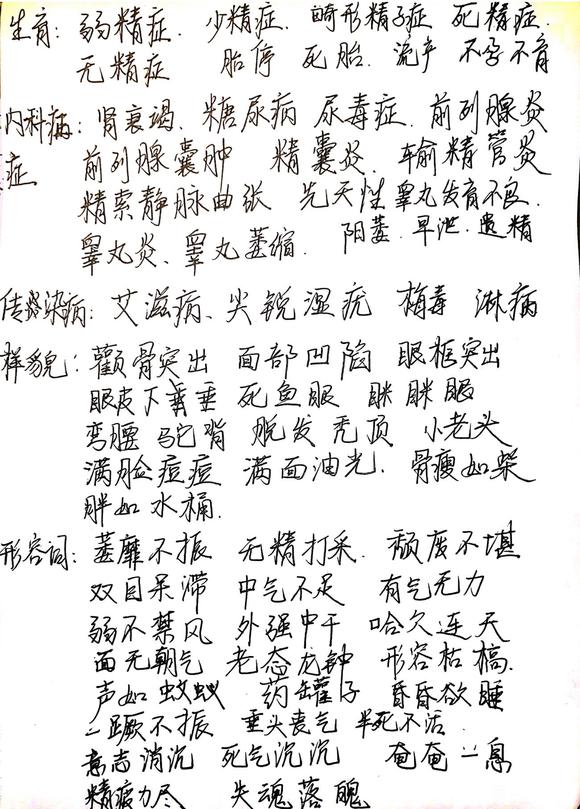 生育: 弱精症. 少精症. 畸形精子症 死精症.
无精症 胎停 死胎. 流产 不孕不育
内科病: 肾衰竭. 糖尿病 尿毒症. 前列腺炎
症 前列腺囊肿 精囊炎. 输精管炎
精索静脉曲张 先天性睾丸发育不良.
睾丸炎、睾丸萎缩. 阳萎. 早泄. 遗精
传染病: 艾滋病、尖锐湿疣 梅毒 淋病
样貌: 颧骨突出 面部凹陷 眼框突出
眼皮下垂 死鱼眼 眯眯眼
弯腰驼背 脱发秃顶 小老头
满脸痘痘 满面油光. 骨瘦如柴
胖如水桶.
形容词: 萎靡不振 无精打采. 颓废不堪
双目呆滞 中气不足 有气无力
弱不禁风 外强中干 哈欠连天
面无朝气 老态龙钟 形容枯槁.
声如蚊蚁 药罐子 昏昏欲睡
一蹶不振 垂头丧气 半死不活.
意志消沉 死气沉沉 奄奄一息
精疲力尽 失魂落魄